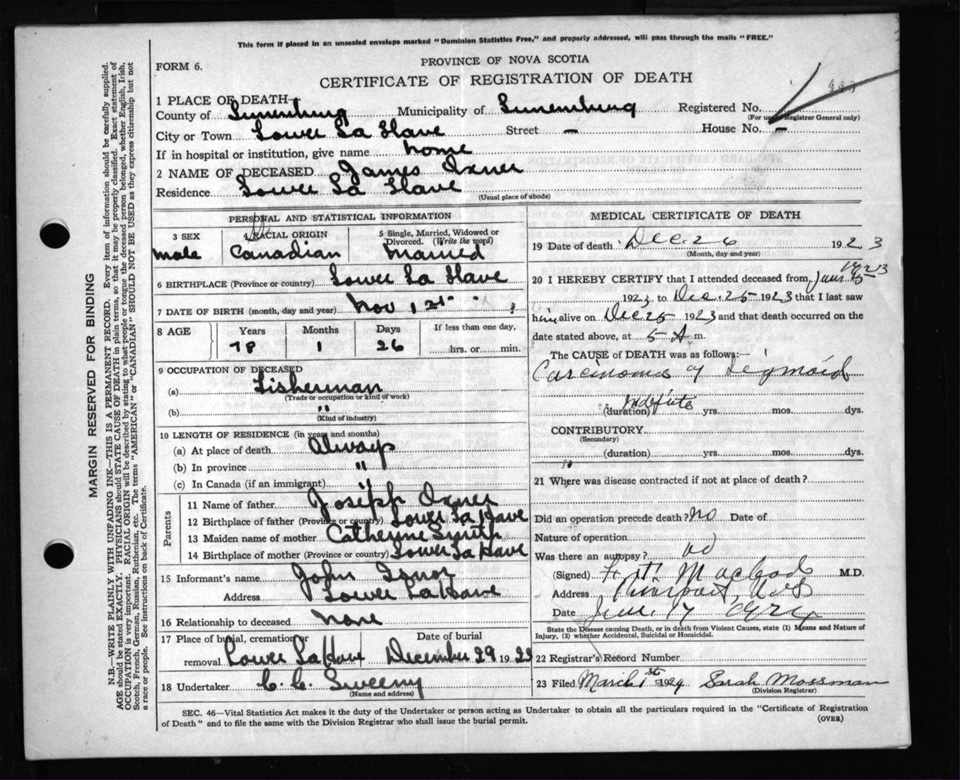 This form if placed in an unsealed envelope marked "Dominion Statistics Free," and properly addressed, will pass through the mails "FREE."
FORM 6.
PROVINCE OF NOVA SCOTIA
CERTIFICATE OF REGISTRATION OF DEATH
1 PLACE OF DEATH—
County of Lunenburg Municipality of Lunenburg Registered No.
(For use of Registrar General only)
City or Town Lower La Have Street — House No. —
If in hospital or institution, give name home
2 NAME OF DECEASED James Oxner
Residence Lower La Have
(Usual place of abode)
PERSONAL AND STATISTICAL INFORMATION
3 SEX 4 RACIAL ORIGIN 5 Single, Married, Widowed or Divorced. (Write the word)
male Canadian Married
6 BIRTHPLACE (Province or country) Lower La Have
7 DATE OF BIRTH (month, day and year) Nov 1st ?
8 AGE Years Months Days If less than one day,
78 1 26 hrs. or min.
9 OCCUPATION OF DECEASED
(a) Fisherman
(Trade or occupation or kind of work)
(b) "
(Kind of industry)
10 LENGTH OF RESIDENCE (in years and months)
(a) At place of death Always
(b) In province "
(c) In Canada (if an immigrant) "
Parents
11 Name of father Joseph Oxner
12 Birthplace of father (Province or country) Lower La Have
13 Maiden name of mother Catherine Smith
14 Birthplace of mother (Province or country) Lower La Have
15 Informant's name John
Address Lower La Have
16 Relationship to deceased None
17 Place of burial, cremation or removal Date of burial
Lower La Have December 29 1923
18 Undertaker C. C. Sweeny
(Name and address)
MEDICAL CERTIFICATE OF DEATH
19 Date of death Dec. 26 1923
(Month, day and year)
20 I HEREBY CERTIFY that I attended deceased from June 15 1923
1923 to Dec. 25 1923 that I last saw
him alive on Dec 25 1923 and that death occurred on the
date stated above, at 5 A m.
The CAUSE OF DEATH was as follows:—
Carcinoma of Sigmoid
(duration) yrs. mos. dys.
CONTRIBUTORY
(Secondary)
(duration) yrs. mos. dys.
21 Where was disease contracted if not at place of death?
Did an operation precede death? no Date of
Nature of operation
Was there an autopsy? no
(Signed) M.D.
Address
Date
State the Disease causing Death, or in death from Violent Causes, state (1) Means and Nature of Injury, (2) whether Accidental, Suicidal or Homicidal.
22 Registrar's Record Number
23 Filed March 1st 1924 Sarah Mossman
(Division Registrar)
SEC. 46—Vital Statistics Act makes it the duty of the Undertaker or person acting as Undertaker to obtain all the particulars required in the "Certificate of Registration
of Death" and to file the same with the Division Registrar who shall issue the burial permit.
(OVER)
MARGIN RESERVED FOR BINDING
N.B.—WRITE PLAINLY WITH UNFADING INK—THIS IS A PERMANENT RECORD. Every item of information should be carefully supplied.
AGE should be stated EXACTLY. PHYSICIANS should STATE CAUSE OF DEATH in plain terms, so that it may be properly classified. Exact statement of
OCCUPATION is very important. RACIAL ORIGIN will be described by stating to what people or tongue the deceased person belonged, whether English, Irish,
Scotch, French, German, Russian, Ruthenian, etc. The terms "AMERICAN" or "CANADIAN" SHOULD NOT BE USED as they express citizenship but not
a race or people. See instructions on back of Certificate.